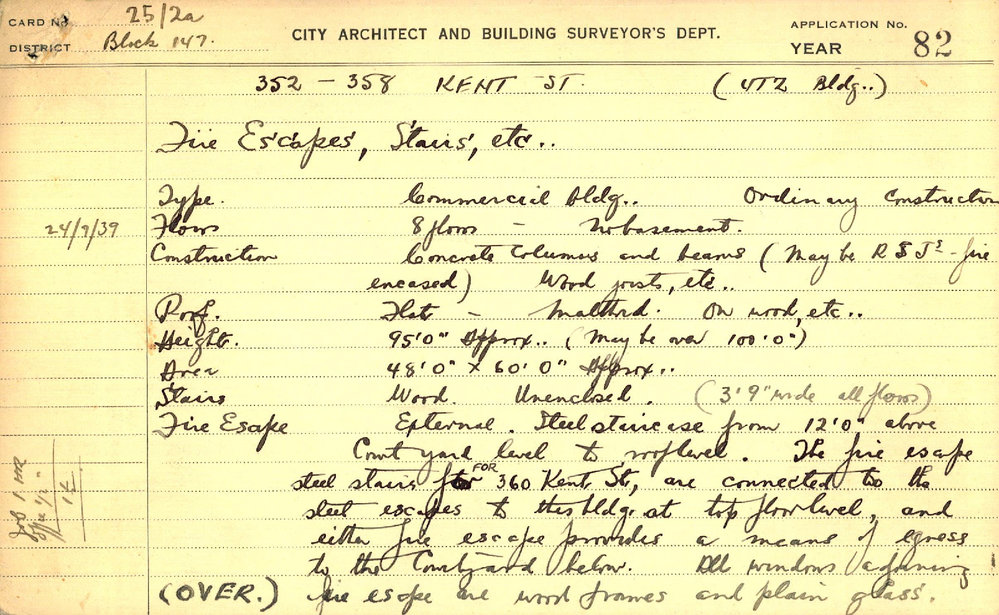 CARD No 25/2a
CITY ARCHITECT AND BUILDING SURVEYOR'S DEPT.
APPLICATION No.
DISTRICT Block 147.
YEAR 82
352 – 358 KENT ST. (UTZ Bldg..)
Fire Escapes, Stairs, etc..
Type. Commercial bldg.. Ordinary Construction
24/7/39 Floors 8 floors – No basement.
Construction Concrete Columns and beams (May be R S Js - fire
encased) Wood joists, etc..
Roof. Flat – Malthoid. On wood, etc..
Height. 95'0" Approx.. (May be over 100'0")
Area 48'0" x 60'0" Approx..
Stairs Wood. Unenclosed. (3'9" wide all floors)
Fire Escape External. Steel staircase from 12'0" above
Court yard level to roof level. The fire escape
steel stairs for FOR 360 Kent St, are connected to the
steel escapes to this bldg. at top floor level, and
either fire escape provides a means of egress
to the Courtyard below. All windows adjoining
(OVER.) fire escape are wood frames and plain glass.